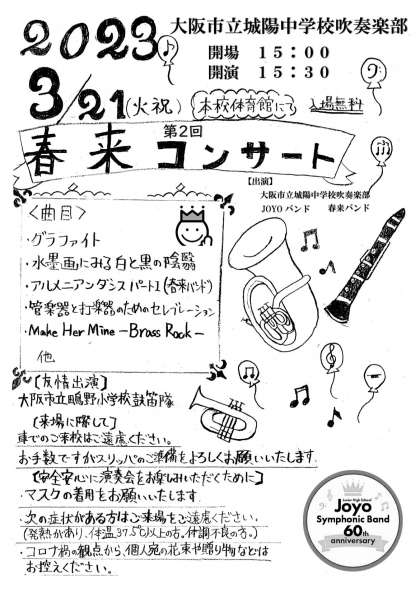 2023
大阪市立城陽中学校吹奏楽部
開場 15:00
開演 15:30
3/21(火祝) 本校体育館にて 入場無料
第2回
春来コンサート
【出演】
大阪市立城陽中学校吹奏楽部
JOYOバンド 春来バンド
〈曲目〉
・グラファイト
・水墨画にみる白と黒の陰翳
・アルメニアンダンス パートI (春来バンド)
・管楽器と打楽器のためのセレブレーション
・Make Her Mine -Brass Rock-
他
【友情出演】
大阪市立鴫野小学校鼓笛隊
【来場に際して】
車でのご来校はご遠慮ください。
お手数ですがスリッパのご準備をよろしくお願いいたします。
【安全安心に演奏会をお楽しみいただくために】
・マスクの着用をお願いいたします
・次の症状がある方はご来場をご遠慮ください。
(発熱があり、体温37.5℃以上の方。体調不良の方。)
・コロナ禍の観点から、個人宛の花束や贈り物などは
お控えください。
Junior High School
Joyo
Symphonic Band
60th
anniversary